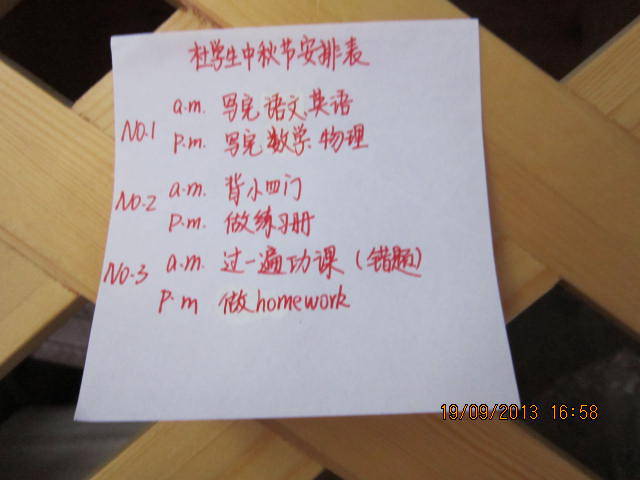 杜学生中秋节安排表
NO.1 a.m. 写完语文英语
p.m. 写完数学物理
NO.2 a.m. 背小四门
p.m. 做练习册
NO.3 a.m. 过一遍功课(错题)
p.m 做homework
19/09/2013 16:58